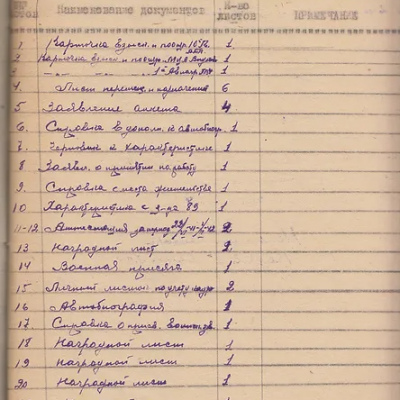 Наименование документов К-во листов ПРИМЕЧАНИЕ
1 Карточка взыск. и поощр. 1
2 Карточка взыск и поощр 1
3 1
4. Лист перемещ. и назначения 6
5 Заявление анкета 4
6. Справка в дополн. к автобиогр. 1
7. к характеристике 1
8 Заявл. о принятии на работу 1
9. Справка с места жительства 1
10 Характеристика с 1
11-12. Аттестация за период 2
13 Наградной лист
14 Военная присяга 1
15 Личный листок по учету кадр 2
16 Автобиография 1
17. Справка о присв. 1
18 Наградной лист 1
19 Наградной лист 1
20 Наградной лист 1